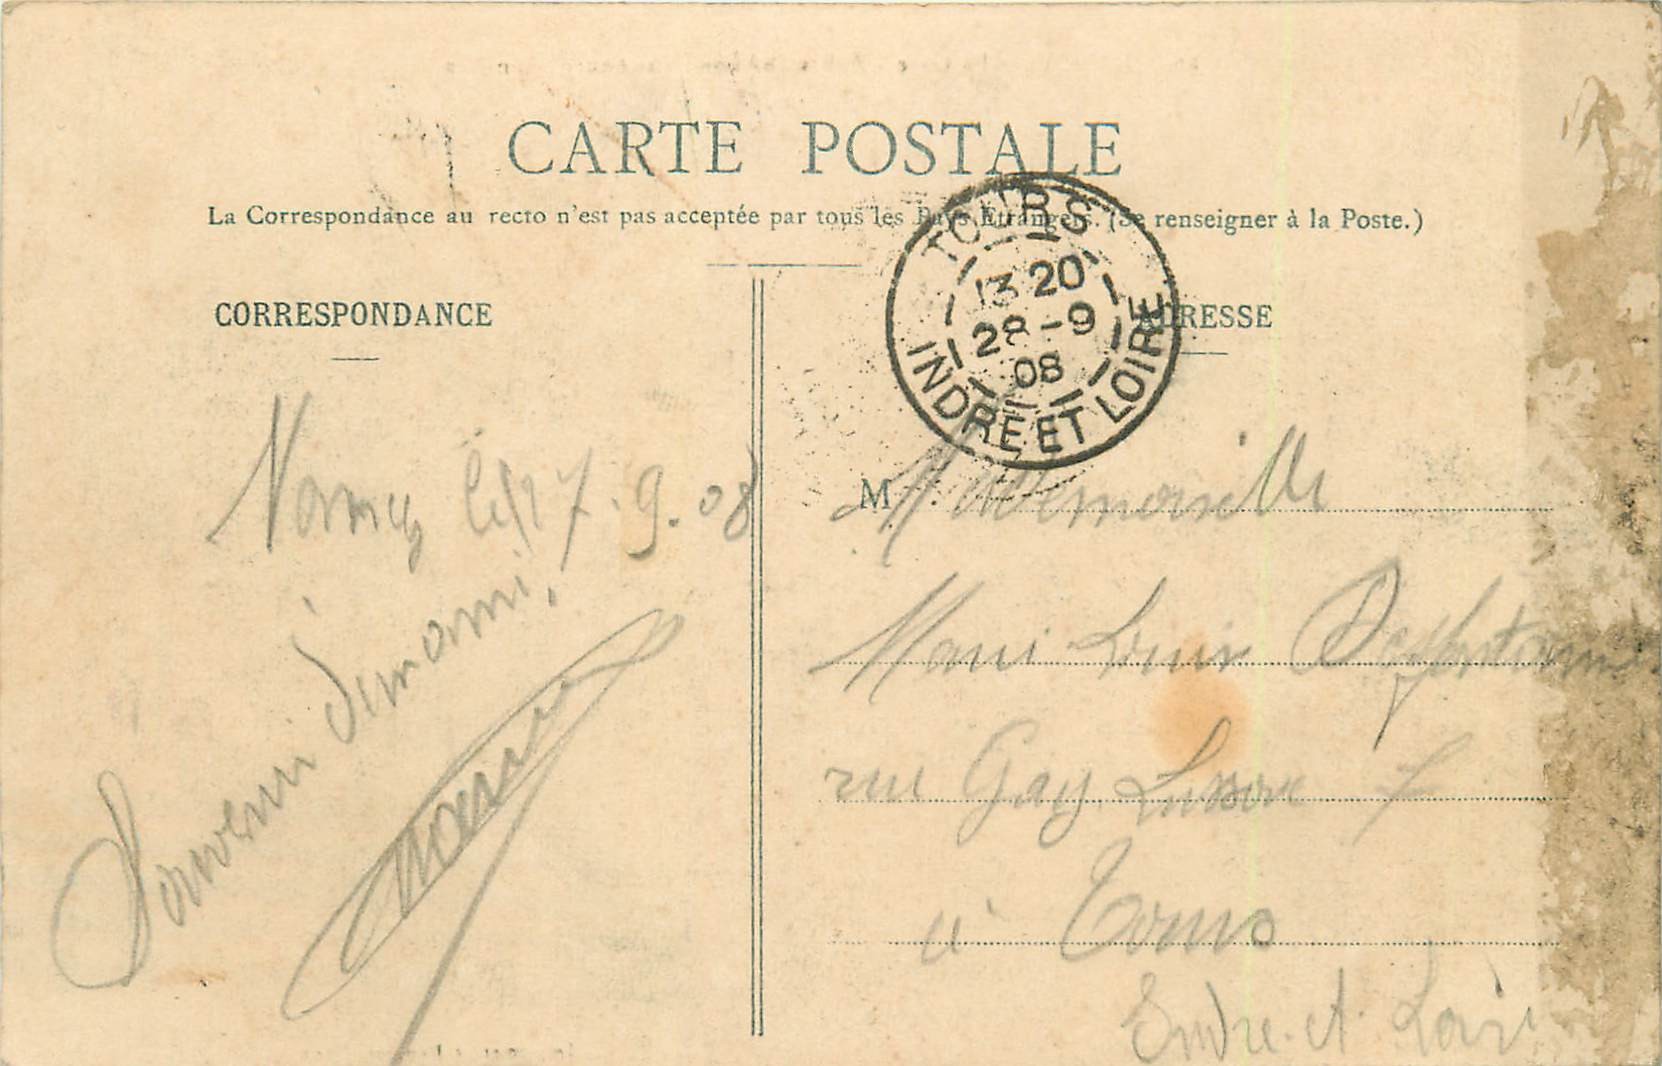 CARTE POSTALE
La Correspondance au recto n'est pas acceptée par tous les Pays Etrangers. (Se renseigner à la Poste.)
CORRESPONDANCE
ADRESSE
TOURS
13 20
28 - 9
08
INDRE ET LOIRE
Nancy le 27. 9. 08
Souvenir d'un ami.
M
Mademoiselle
Marie Louise
rue Gay Lussac 7
à Tours
Indre et Loire